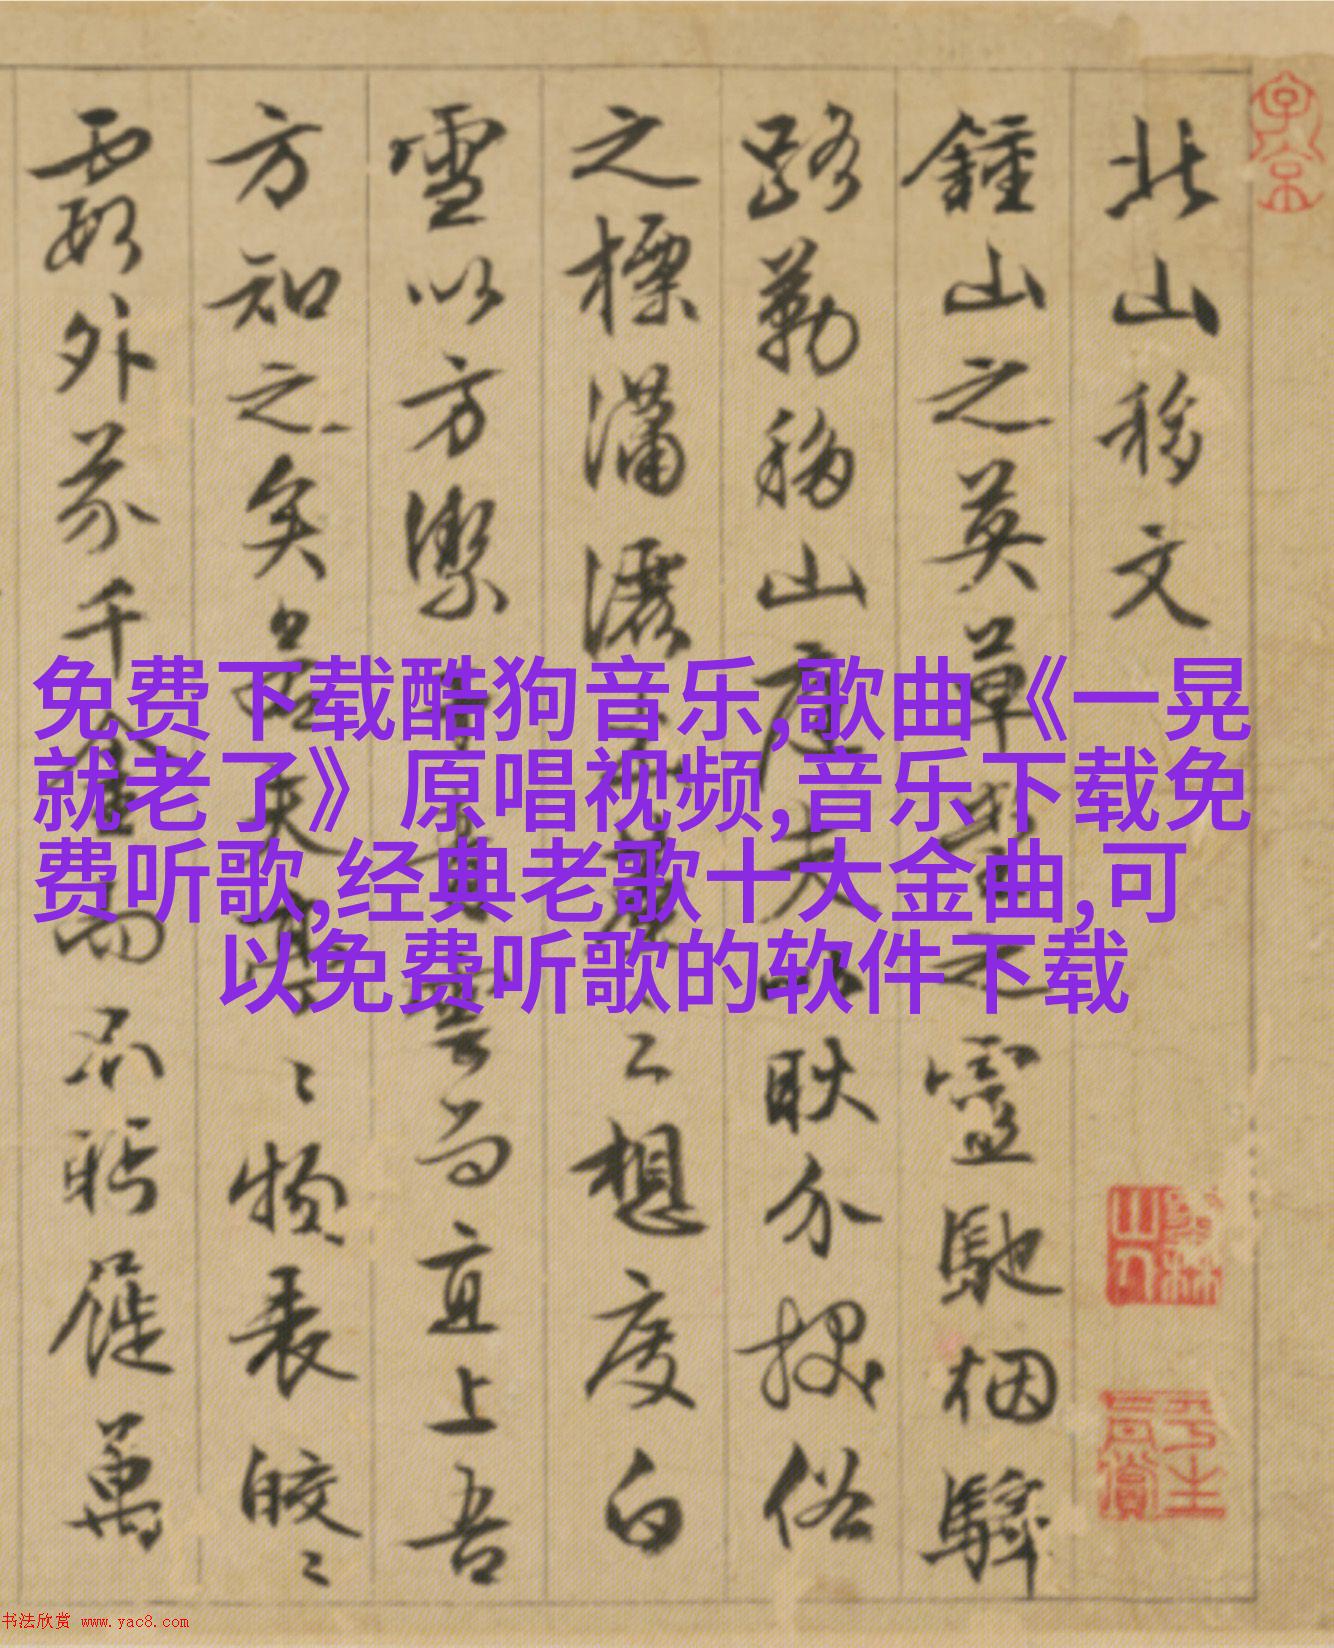 北山移文
鍾山之英草堂之靈馳烟驛
路勒移山庭夫以耿介拔俗
之標瀟灑出塵之想度白
雪以方潔干青雲而直上吾
方知之矣若其亭〻物表皎〻
霞外芥千金而不眄屣萬
免费下载酷狗音乐,歌曲《一晃
就老了》原唱视频,音乐下载免
费听歌,经典老歌十大金曲,可
以免费听歌的软件下载
书法欣赏 www.yac8.com